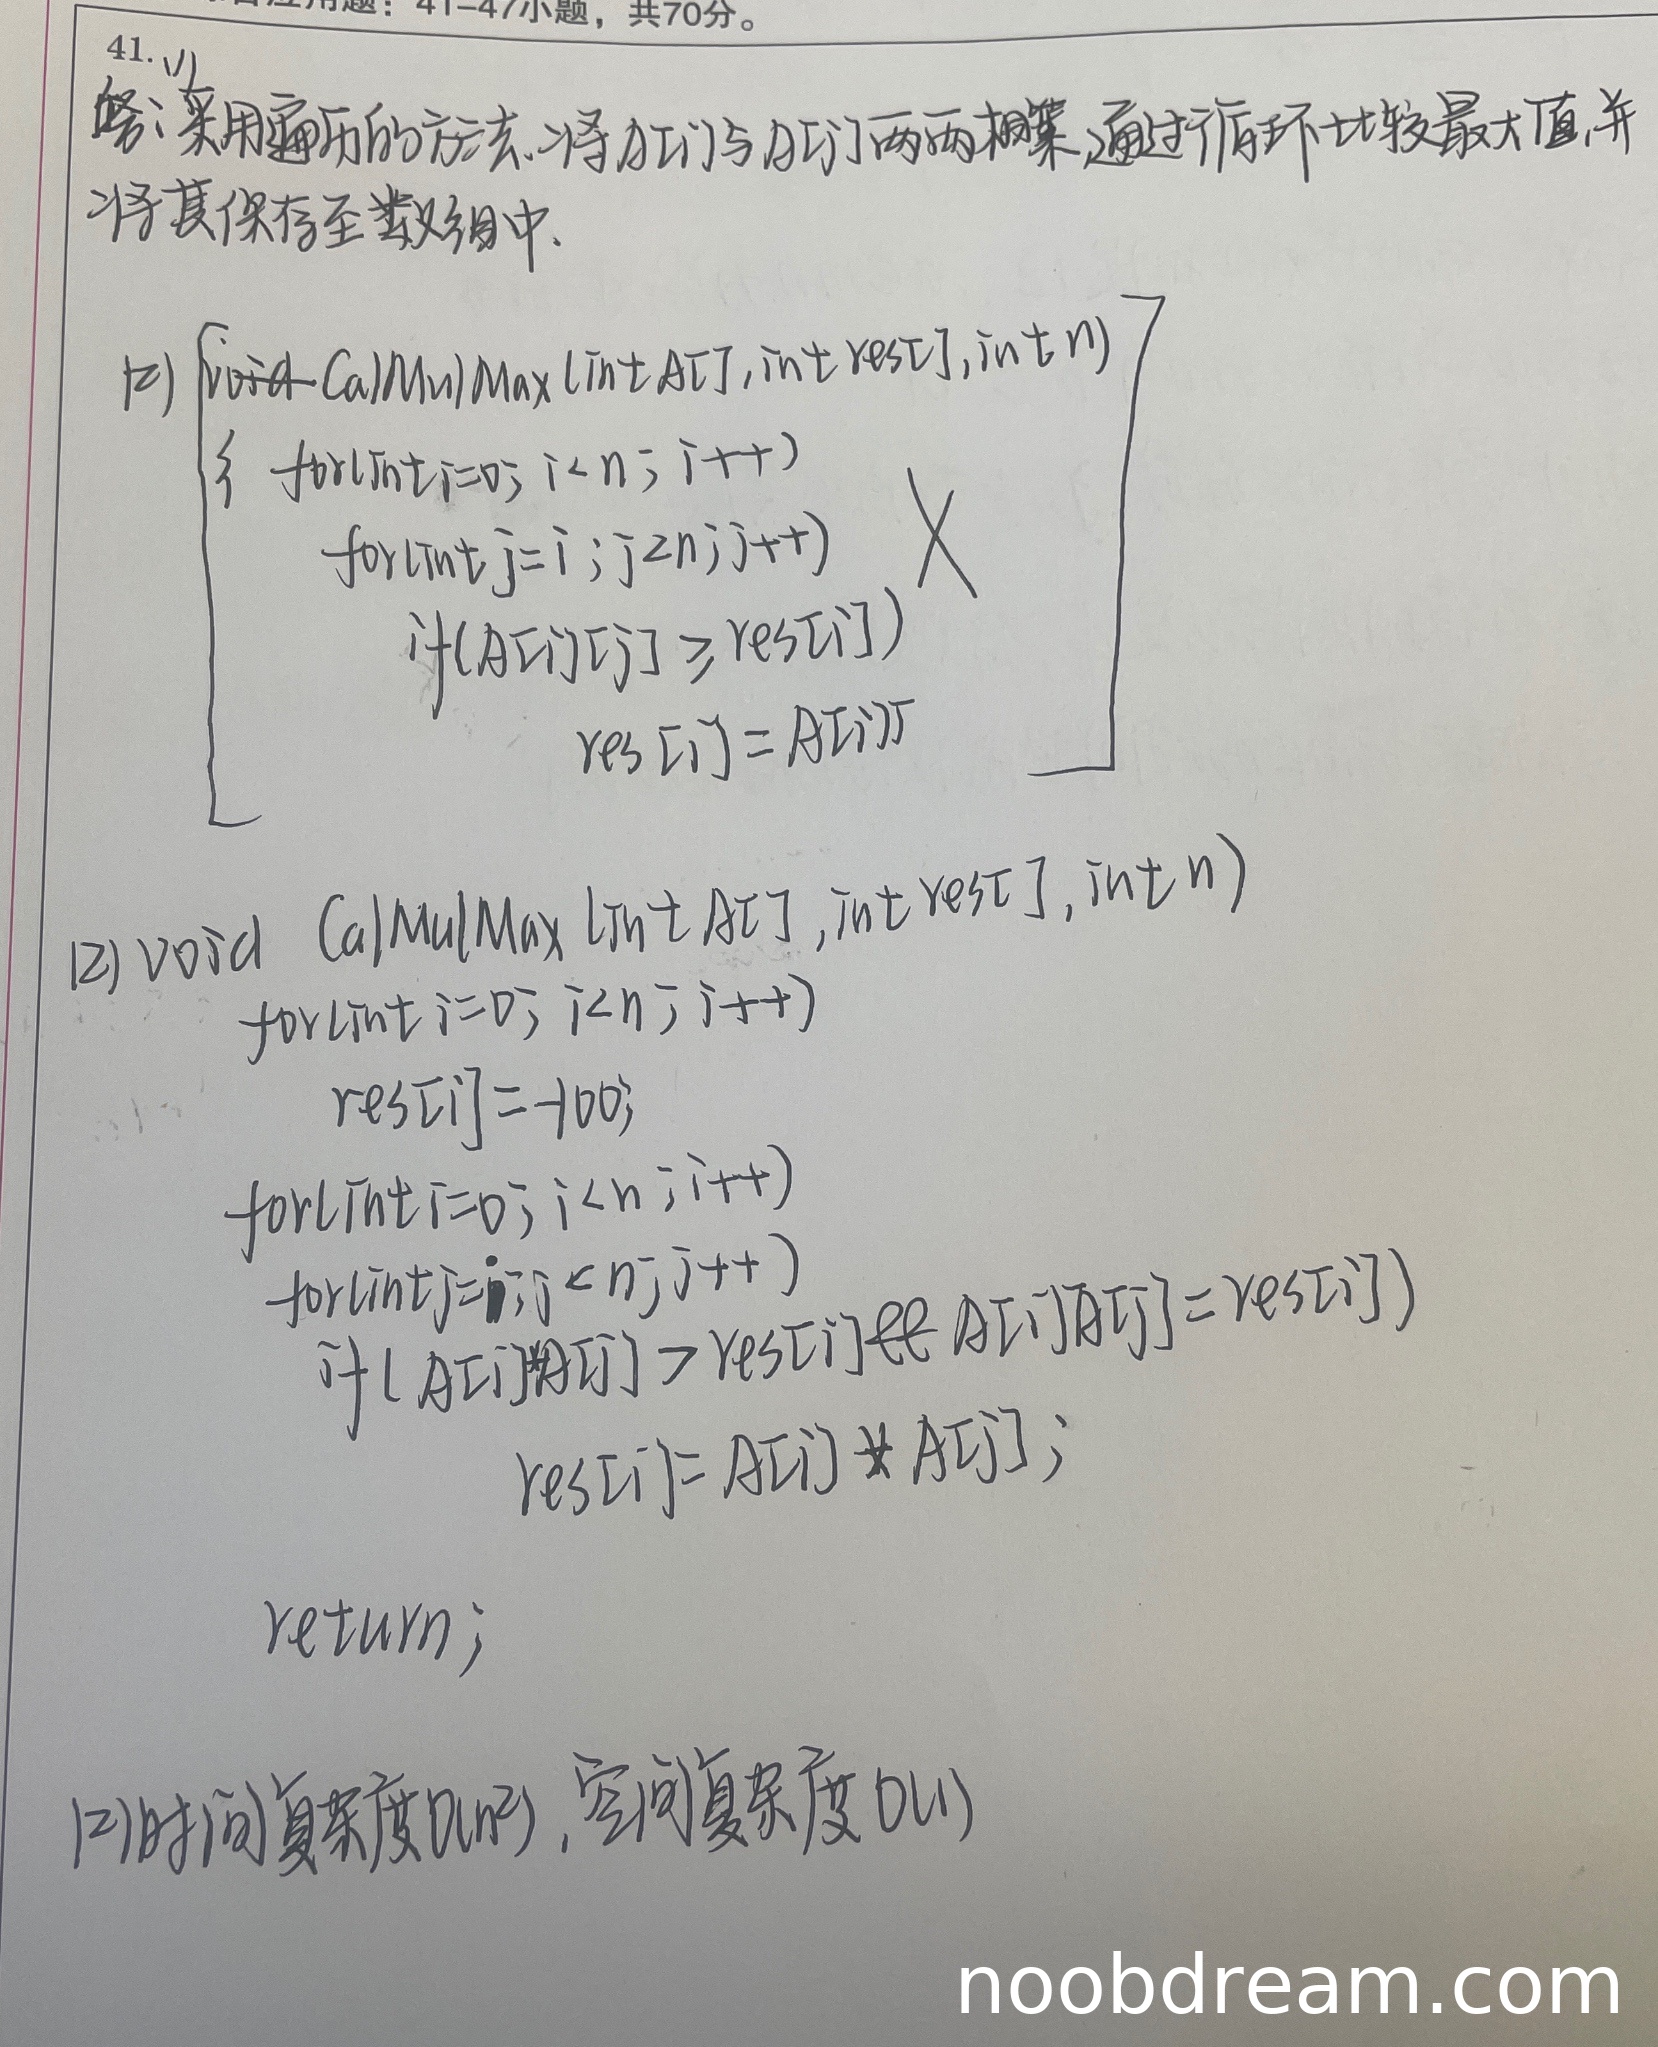 用题：41-47小题，共70分。
41. (1)
答：采用遍历的方法.将A[i]与A[j]两两相乘,通过循环比较最大值,并
将其保存至数组中.
(2) void CalMulMax(int A[], int res[], int n)
{ for(int i=0; i<n; i++)
for(int j=i; j<n; j++)
if(A[i][j] ≥ res[i])
res[i] = A[i][
(2) void CalMulMax(int A[], int res[], int n)
for(int i=0; i<n; i++)
res[i]=-100;
for(int i=0; i<n; i++)
for(int j=i; j<n; j++)
if(A[i]*A[j] > res[i] && A[i]A[j]=res[i])
res[i]=A[i]*A[j];
return;
(2)时间复杂度O(n²), 空间复杂度O(1)
noobdream.com